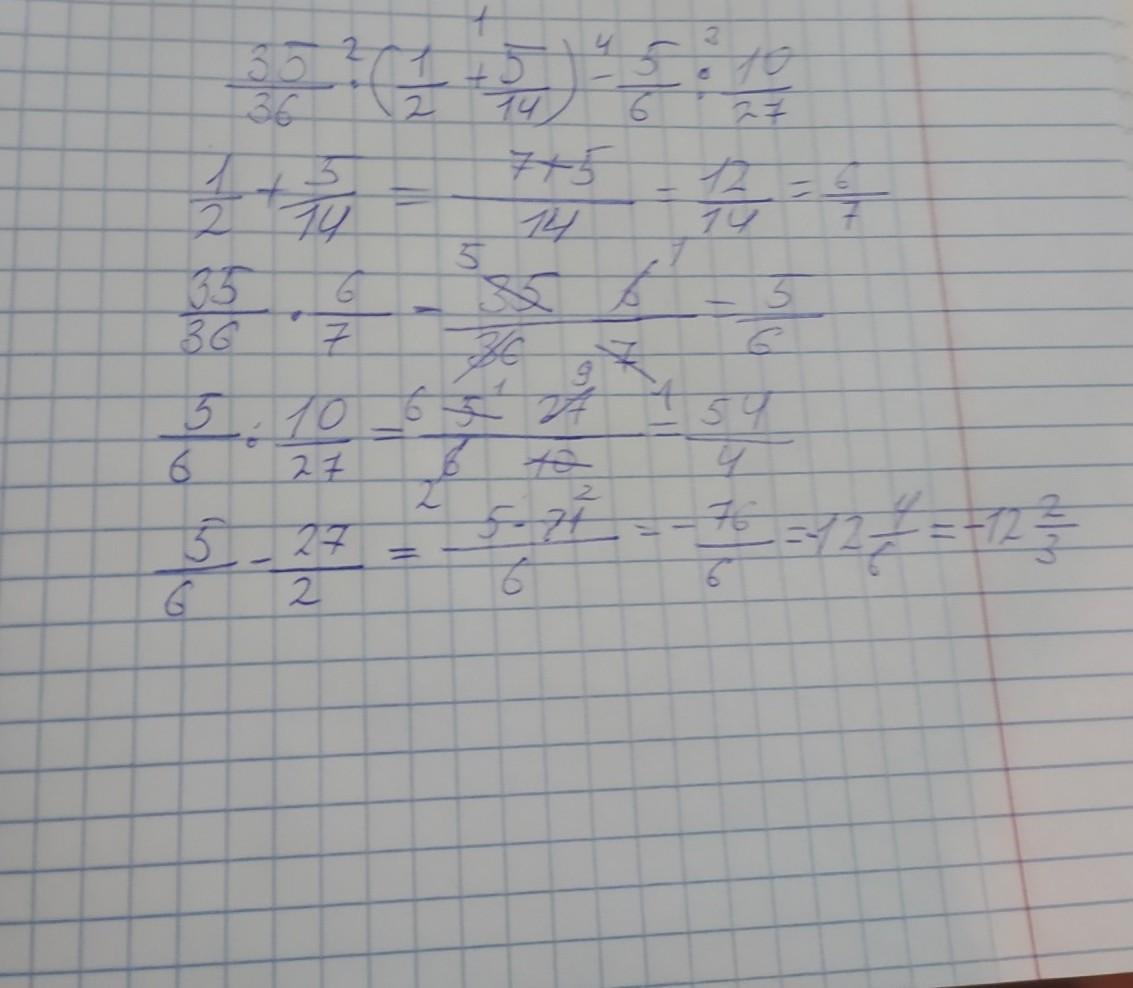 35/36 · (1/2 + 5/14) - 5/6 : 10/27
1/2 + 5/14 = (7+5)/14 = 12/14 = 6/7
35/36 · 6/7 = (35 6)/(36 7) = 5/6
5/6 : 10/27 = (5 27)/(6 10) = 54/4
5/6 - 27/2 = (5-71)/6 = -76/6 = -12 4/6 = -12 2/3